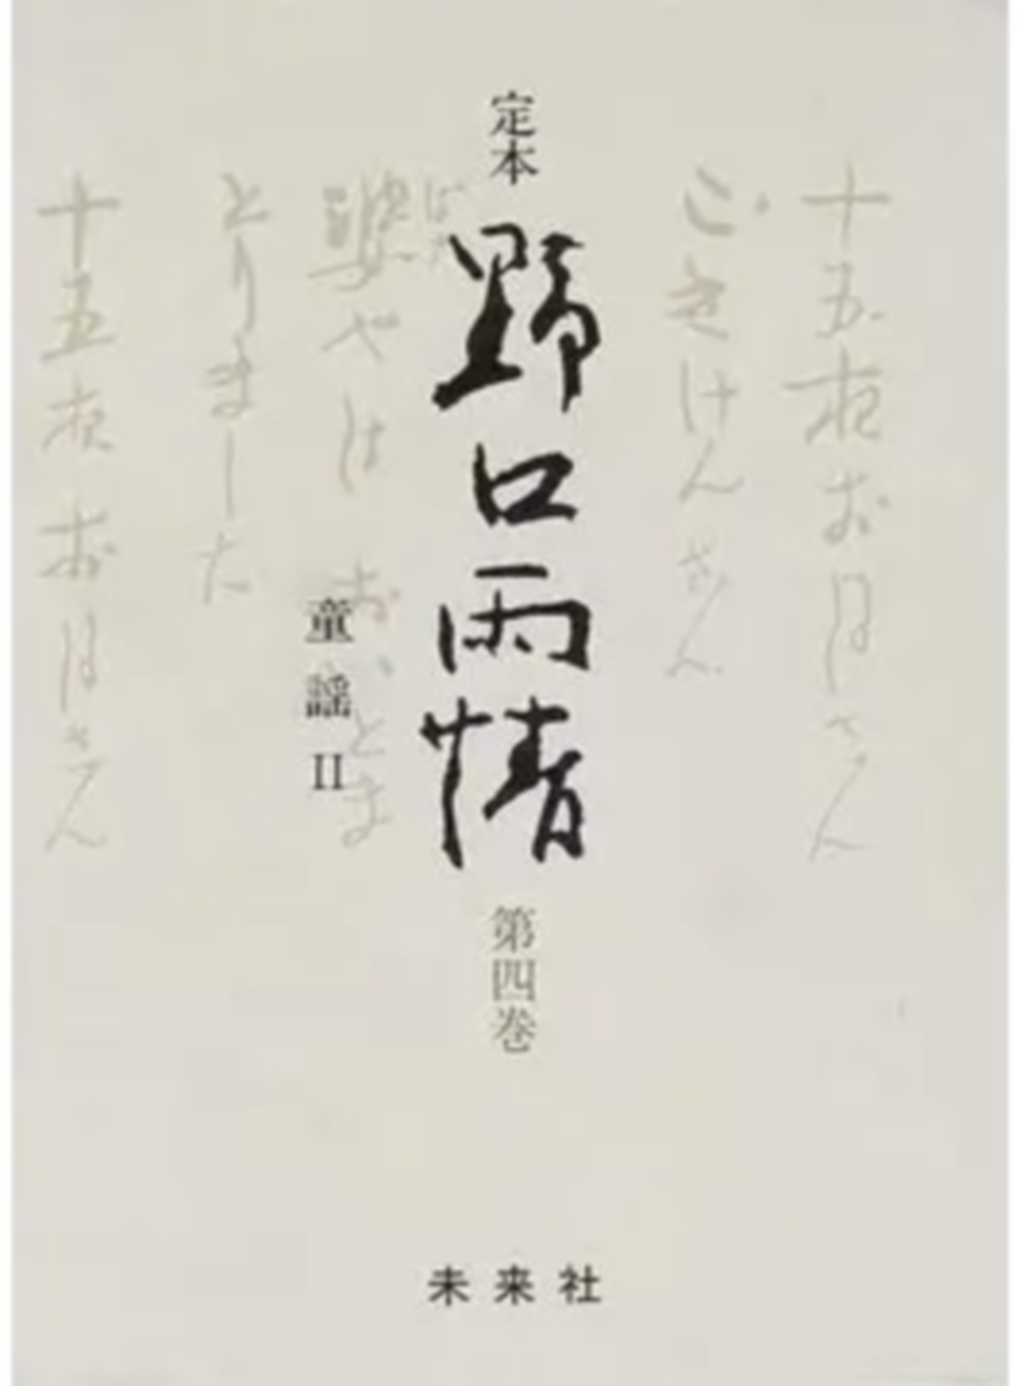 定本
野口雨情
第四巻
童謡II
十五夜お月さん
ごきげんさん
婆やは おいとま
とりました
十五夜お月さん
未来社